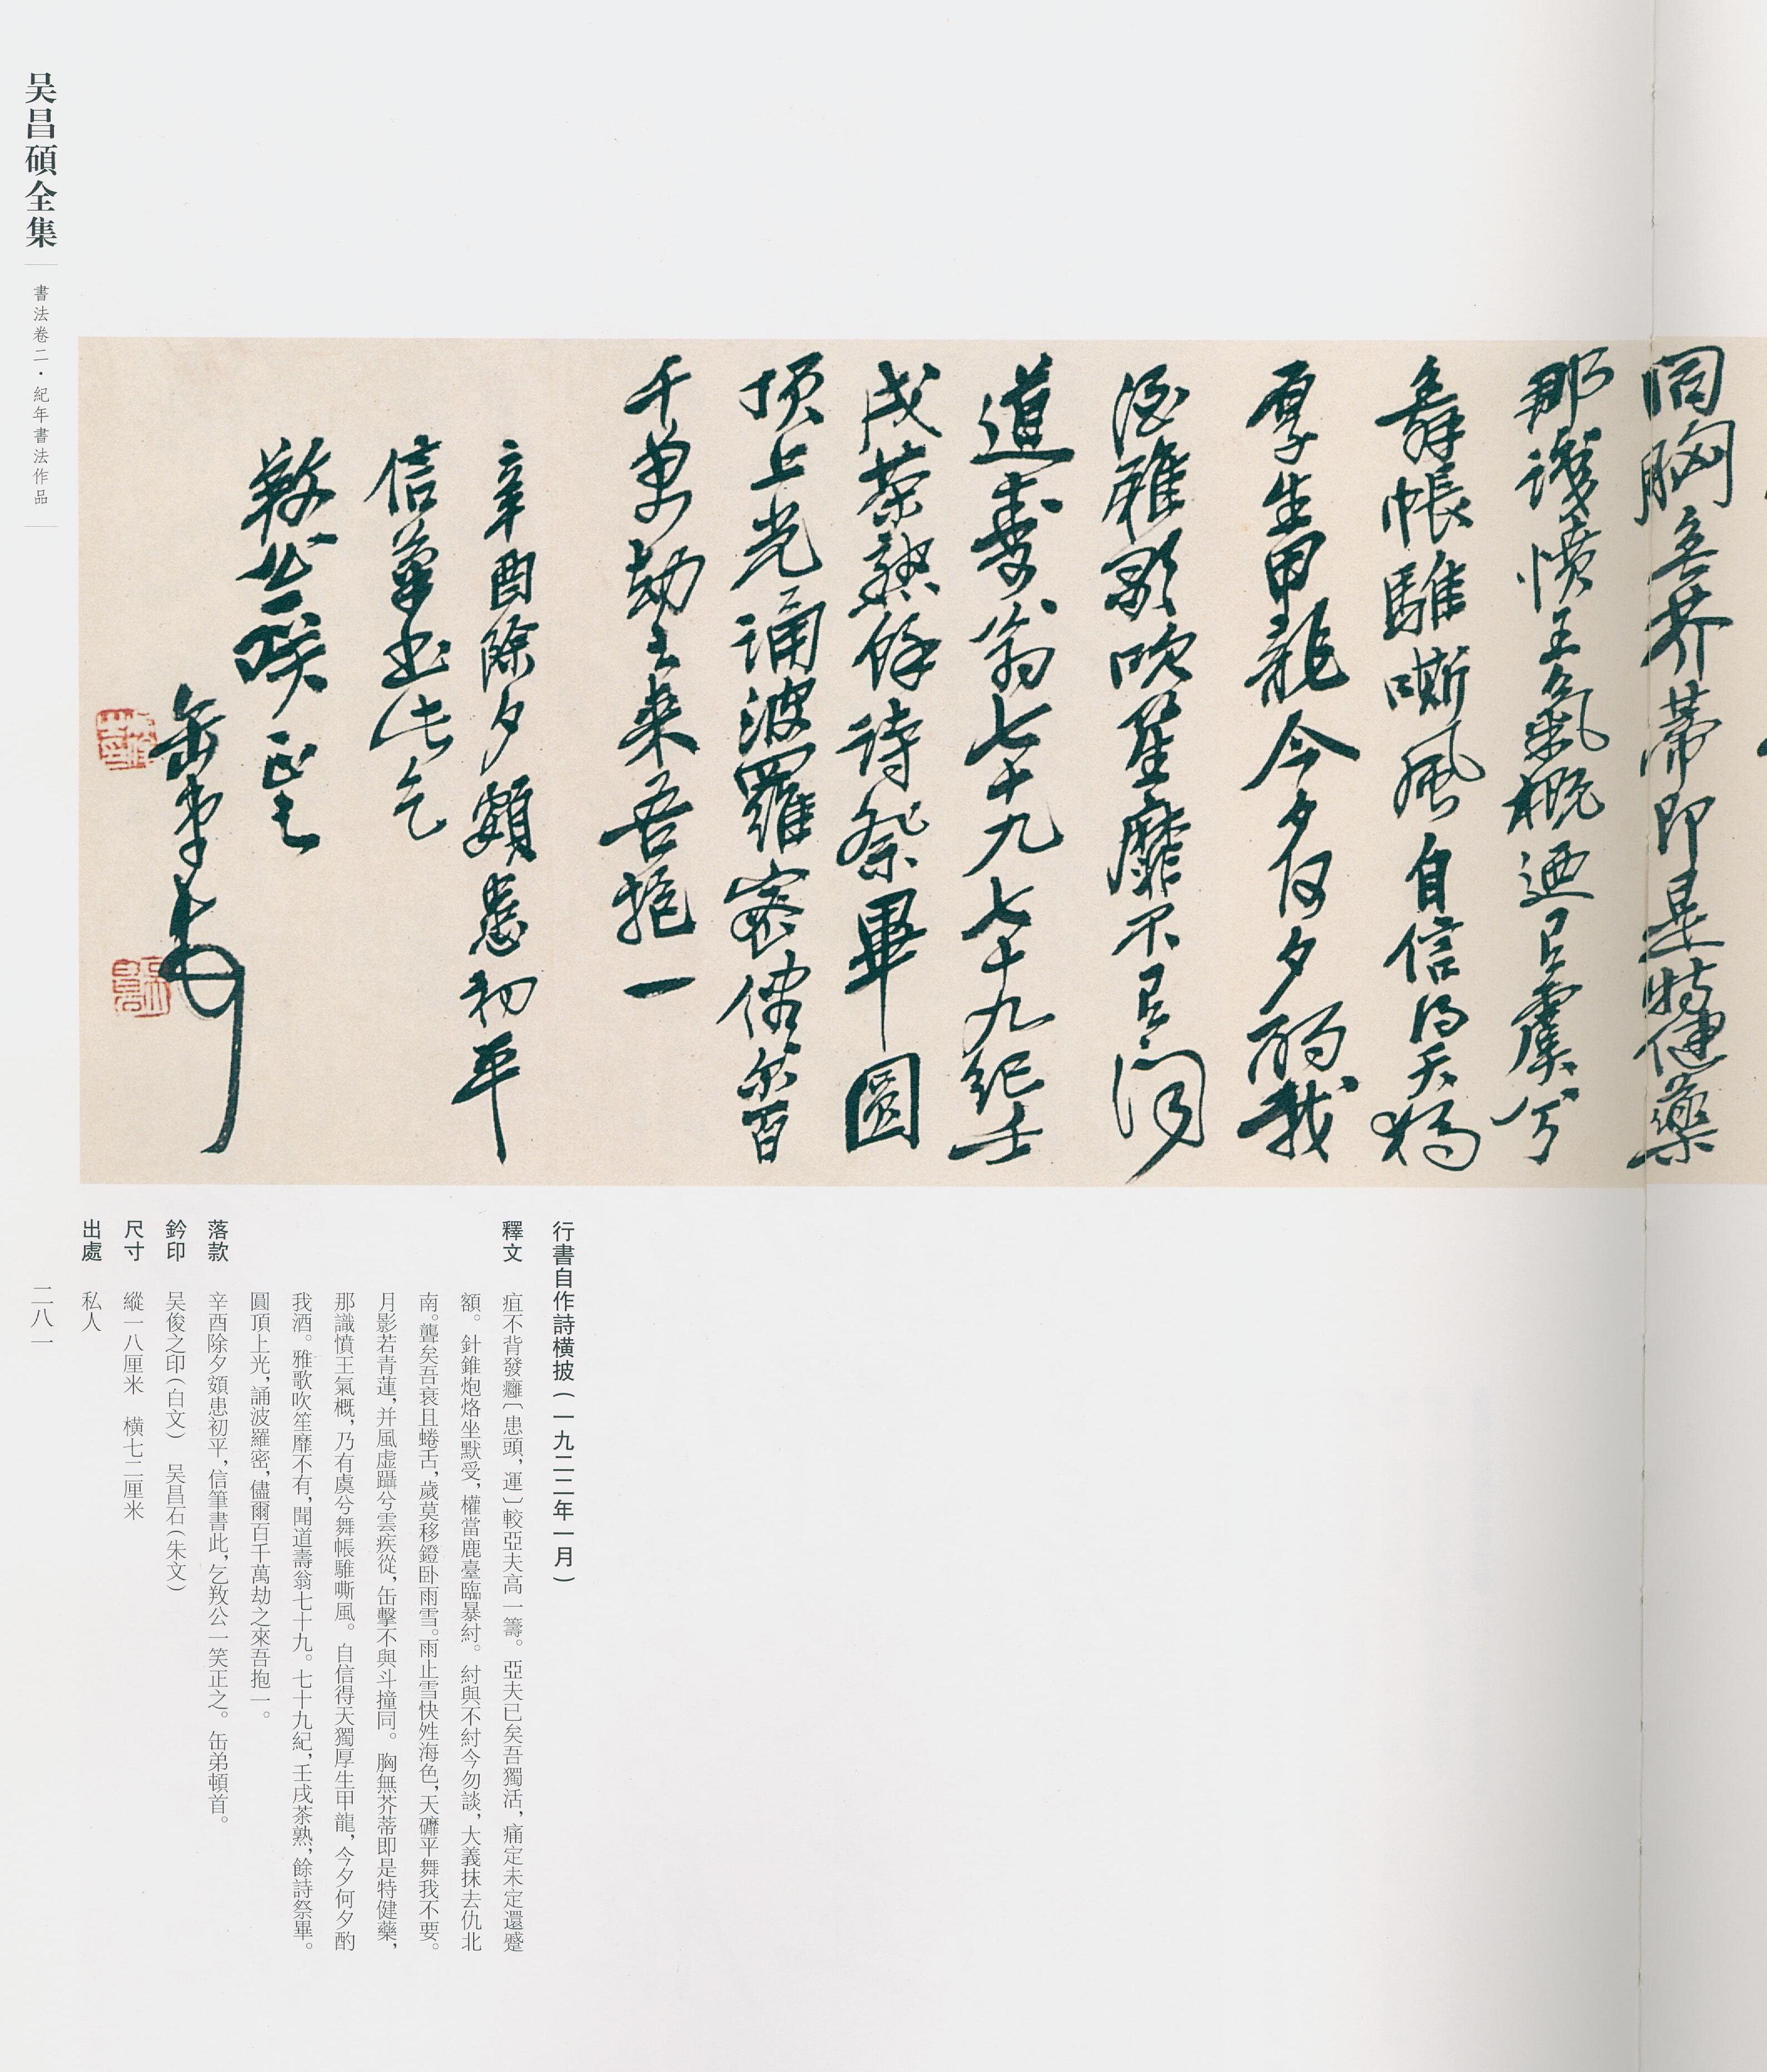 同胸無芥蒂即是特健藥
那識憤王氣概迺有虞兮
舞帳騅嘶風自信得天獨
厚生甲龍今夕何夕酌我
酒雅歌吹笙靡不有聞
道壽翁七十九七十九紀壬
戌茶熟餘詩祭畢圓
頂上光誦波羅密儘爾百
千萬劫之來吾抱一
辛酉除夕頞患初平
信筆書此乞
敩公一笑正之
缶弟頓首
行書自作詩橫披(一九二二年一月)
釋文 疽不背發癰〔患頭,運〕較亞夫高一籌。亞夫已矣吾獨活,痛定未定還蹙
額。針錐炮烙坐默受,權當鹿臺臨暴紂。紂與不紂今勿談,大義抹去仇北
南。聾矣吾衰且蜷舌,歲莫移鐙卧雨雪。雨止雪快姓海色,天礳平舞我不要。
月影若青蓮,并風虛躡兮雲疾從,缶擊不與斗撞同。胸無芥蒂即是特健藥,
那識憤王氣概,乃有虞兮舞帳騅嘶風。自信得天獨厚生甲龍,今夕何夕酌
我酒。雅歌吹笙靡不有,聞道壽翁七十九。七十九紀,壬戌茶熟,餘詩祭畢。
圓頂上光,誦波羅密,儘爾百千萬劫之來吾抱一。
落款 辛酉除夕頞患初平,信筆書此,乞敩公一笑正之。缶弟頓首。
鈐印 吴俊之印(白文) 吴昌石(朱文)
尺寸 縱一八厘米 橫七二厘米
出處 私人
吴昌碩全集
書法卷二·紀年書法作品
二八一